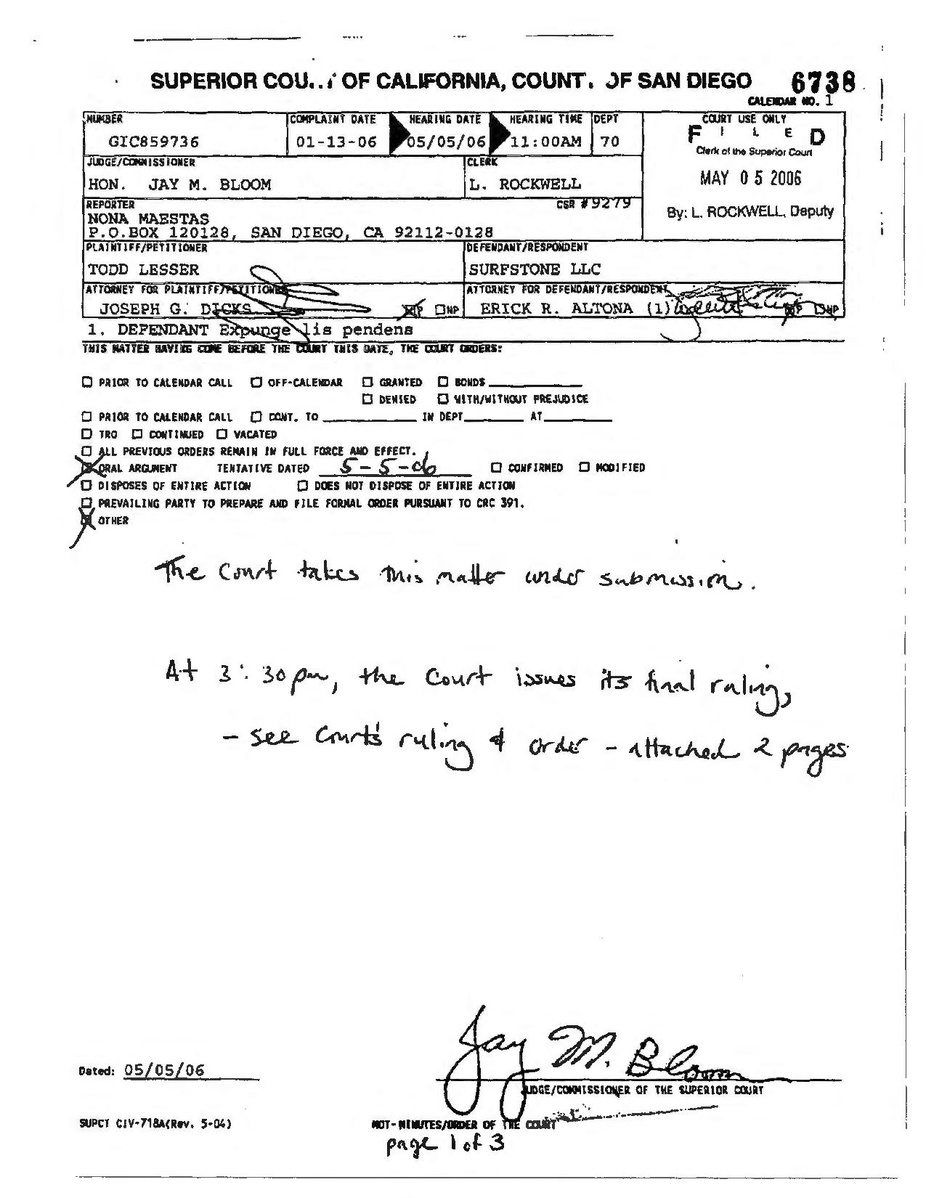 SUPERIOR COU... OF CALIFORNIA, COUNT. OF SAN DIEGO 6738
CALENDAR NO. 1
NUMBER COMPLAINT DATE HEARING DATE HEARING TIME DEPT COURT USE ONLY
GIC859736 01-13-06 05/05/06 11:00AM 70 F I L E D
Clerk of the Superior Court
JUDGE/COMMISSIONER CLERK
HON. JAY M. BLOOM L. ROCKWELL MAY 05 2006
REPORTER CSR #9279
NONA MAESTAS By: L. ROCKWELL, Deputy
P.O.BOX 120128, SAN DIEGO, CA 92112-0128
PLAINTIFF/PETITIONER DEFENDANT/RESPONDENT
TODD LESSER SURFSTONE LLC
ATTORNEY FOR PLAINTIFF/PETITIONER ATTORNEY FOR DEFENDANT/RESPONDENT
JOSEPH G. DICKS P NP ERICK R. ALTONA (1) P NP
1. DEFENDANT Expunge lis pendens
THIS MATTER HAVING COME BEFORE THE COURT THIS DATE, THE COURT ORDERS:
PRIOR TO CALENDAR CALL OFF-CALENDAR GRANTED BONDS
DENIED WITH/WITHOUT PREJUDICE
PRIOR TO CALENDAR CALL CONT. TO IN DEPT AT
TRO CONTINUED VACATED
ALL PREVIOUS ORDERS REMAIN IN FULL FORCE AND EFFECT.
ORAL ARGUMENT TENTATIVE DATED 5-5-06 CONFIRMED MODIFIED
DISPOSES OF ENTIRE ACTION DOES NOT DISPOSE OF ENTIRE ACTION
PREVAILING PARTY TO PREPARE AND FILE FORMAL ORDER PURSUANT TO CRC 391.
OTHER
The Court takes this matter under submission.
At 3:30pm, the Court issues its final ruling,
- see Court's ruling & order - attached 2 pages
Jay M. Bloom
Dated: 05/05/06
JUDGE/COMMISSIONER OF THE SUPERIOR COURT
SUPCT CIV-718A(Rev. 5-04) MOT-MINUTES/ORDER OF THE COURT
page 1 of 3